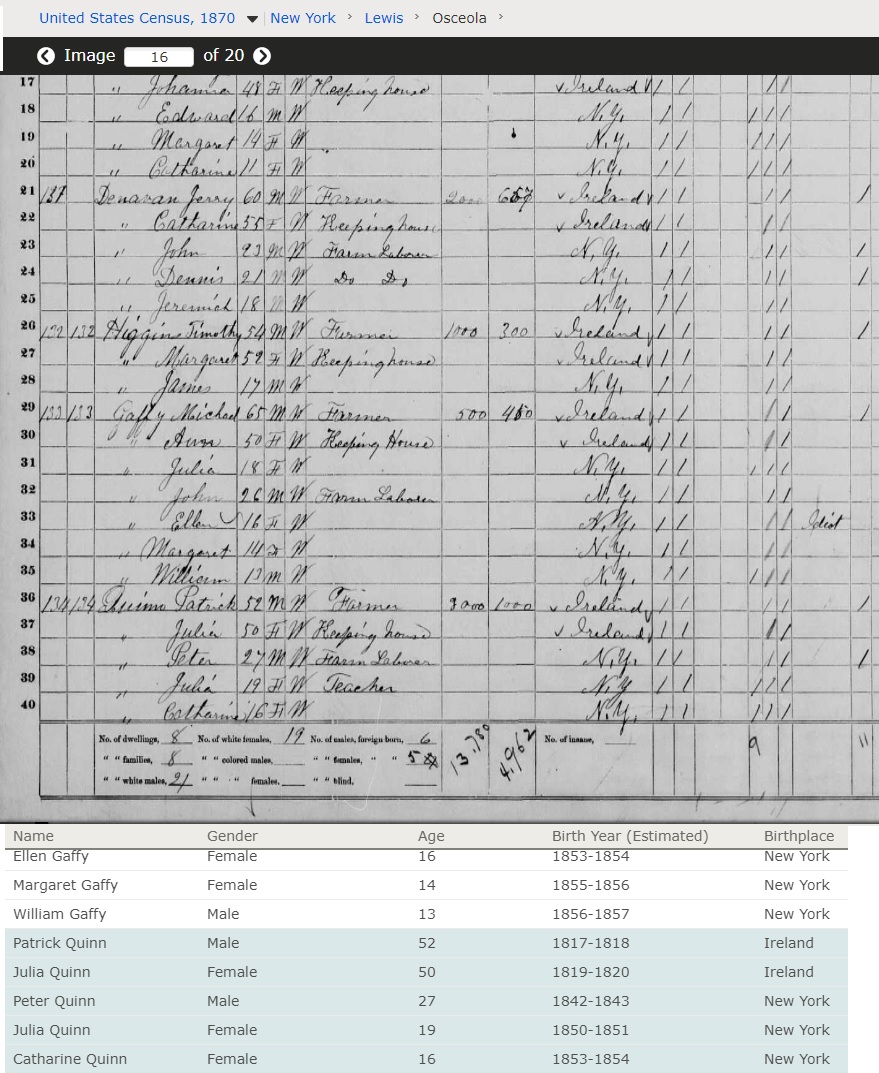 United States Census, 1870 New York > Lewis > Osceola >
Image 16 of 20
17 " Johanna 48 F W Keeping house Ireland
18 " Edward 16 M W N.Y.
19 " Margaret 14 F W N.Y.
20 " Catharine 11 F W N.Y.
21 137 Denavan Jerry 60 M W Farmer 2000 Ireland 1
22 " Catharine 55 F W Keeping house Ireland
23 " John 23 M W Farm Laborer N.Y. 1
24 " Dennis 21 M W Do Do N.Y. 1
25 " Jeremiah 18 M W N.Y.
26 132 132 Higgins Timothy 54 M W Farmer 1000 300 Ireland 1
27 " Margaret 52 F W Keeping house Ireland
28 " James 17 M W N.Y.
29 133 133 Gaffy Michael 65 M W Farmer 500 450 Ireland 1
30 " Ann 50 F W Keeping House Ireland
31 " Julia 18 F W N.Y.
32 " John 26 M W Farm Laborer N.Y.
33 " Ellen 16 F W N.Y. Idiot
34 " Margaret 14 F W N.Y.
35 " William 13 M W N.Y.
36 134 134 Quinn Patrick 52 M W Farmer 3000 1000 Ireland 1
37 " Julia 50 F W Keeping house Ireland
38 " Peter 27 M W Farm Laborer N.Y. 1
39 " Julia 19 F W Teacher N.Y
40 " Catharine 16 F W N.Y.
No. of dwellings, 8 No. of white females, 19 No. of males, foreign born, 6 13,780 4,962 No. of insane, 9 11
" " families, 8 " " colored males, " " females, " " 5
" " white males, 21 " " " females, " " blind,
Name Gender Age Birth Year (Estimated) Birthplace
Ellen Gaffy Female 16 1853-1854 New York
Margaret Gaffy Female 14 1855-1856 New York
William Gaffy Male 13 1856-1857 New York
Patrick Quinn Male 52 1817-1818 Ireland
Julia Quinn Female 50 1819-1820 Ireland
Peter Quinn Male 27 1842-1843 New York
Julia Quinn Female 19 1850-1851 New York
Catharine Quinn Female 16 1853-1854 New York